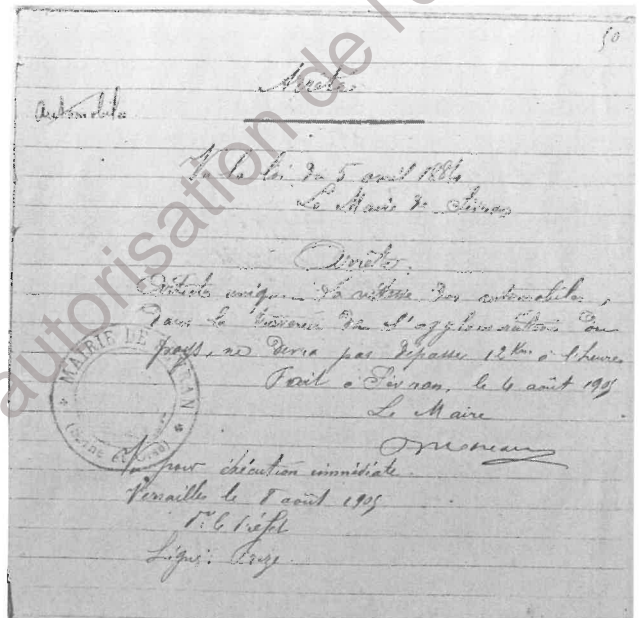 autorisation de l'
50
Arrêté
Automobiles
Vu la loi du 5 avril 1884
Le Maire de Sevran
Arrête :
Article unique. La vitesse des automobiles,
dans la traversée de l'agglomération du
pays, ne devra pas dépasser 12 Km à l'heure
Fait à Sevran, le 4 août 1905
Le Maire
MAIRIE DE SEVRAN
(Seine et Oise)
Vu pour exécution immédiate.
Versailles le 8 août 1905
Pr le Préfet
Signé :